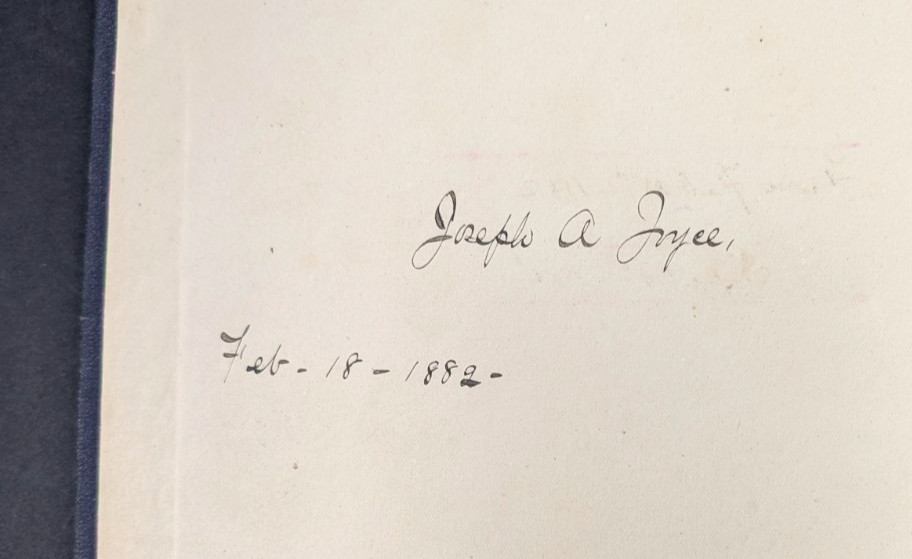 Joseph A Joyce,
Feb - 18 - 1882 -